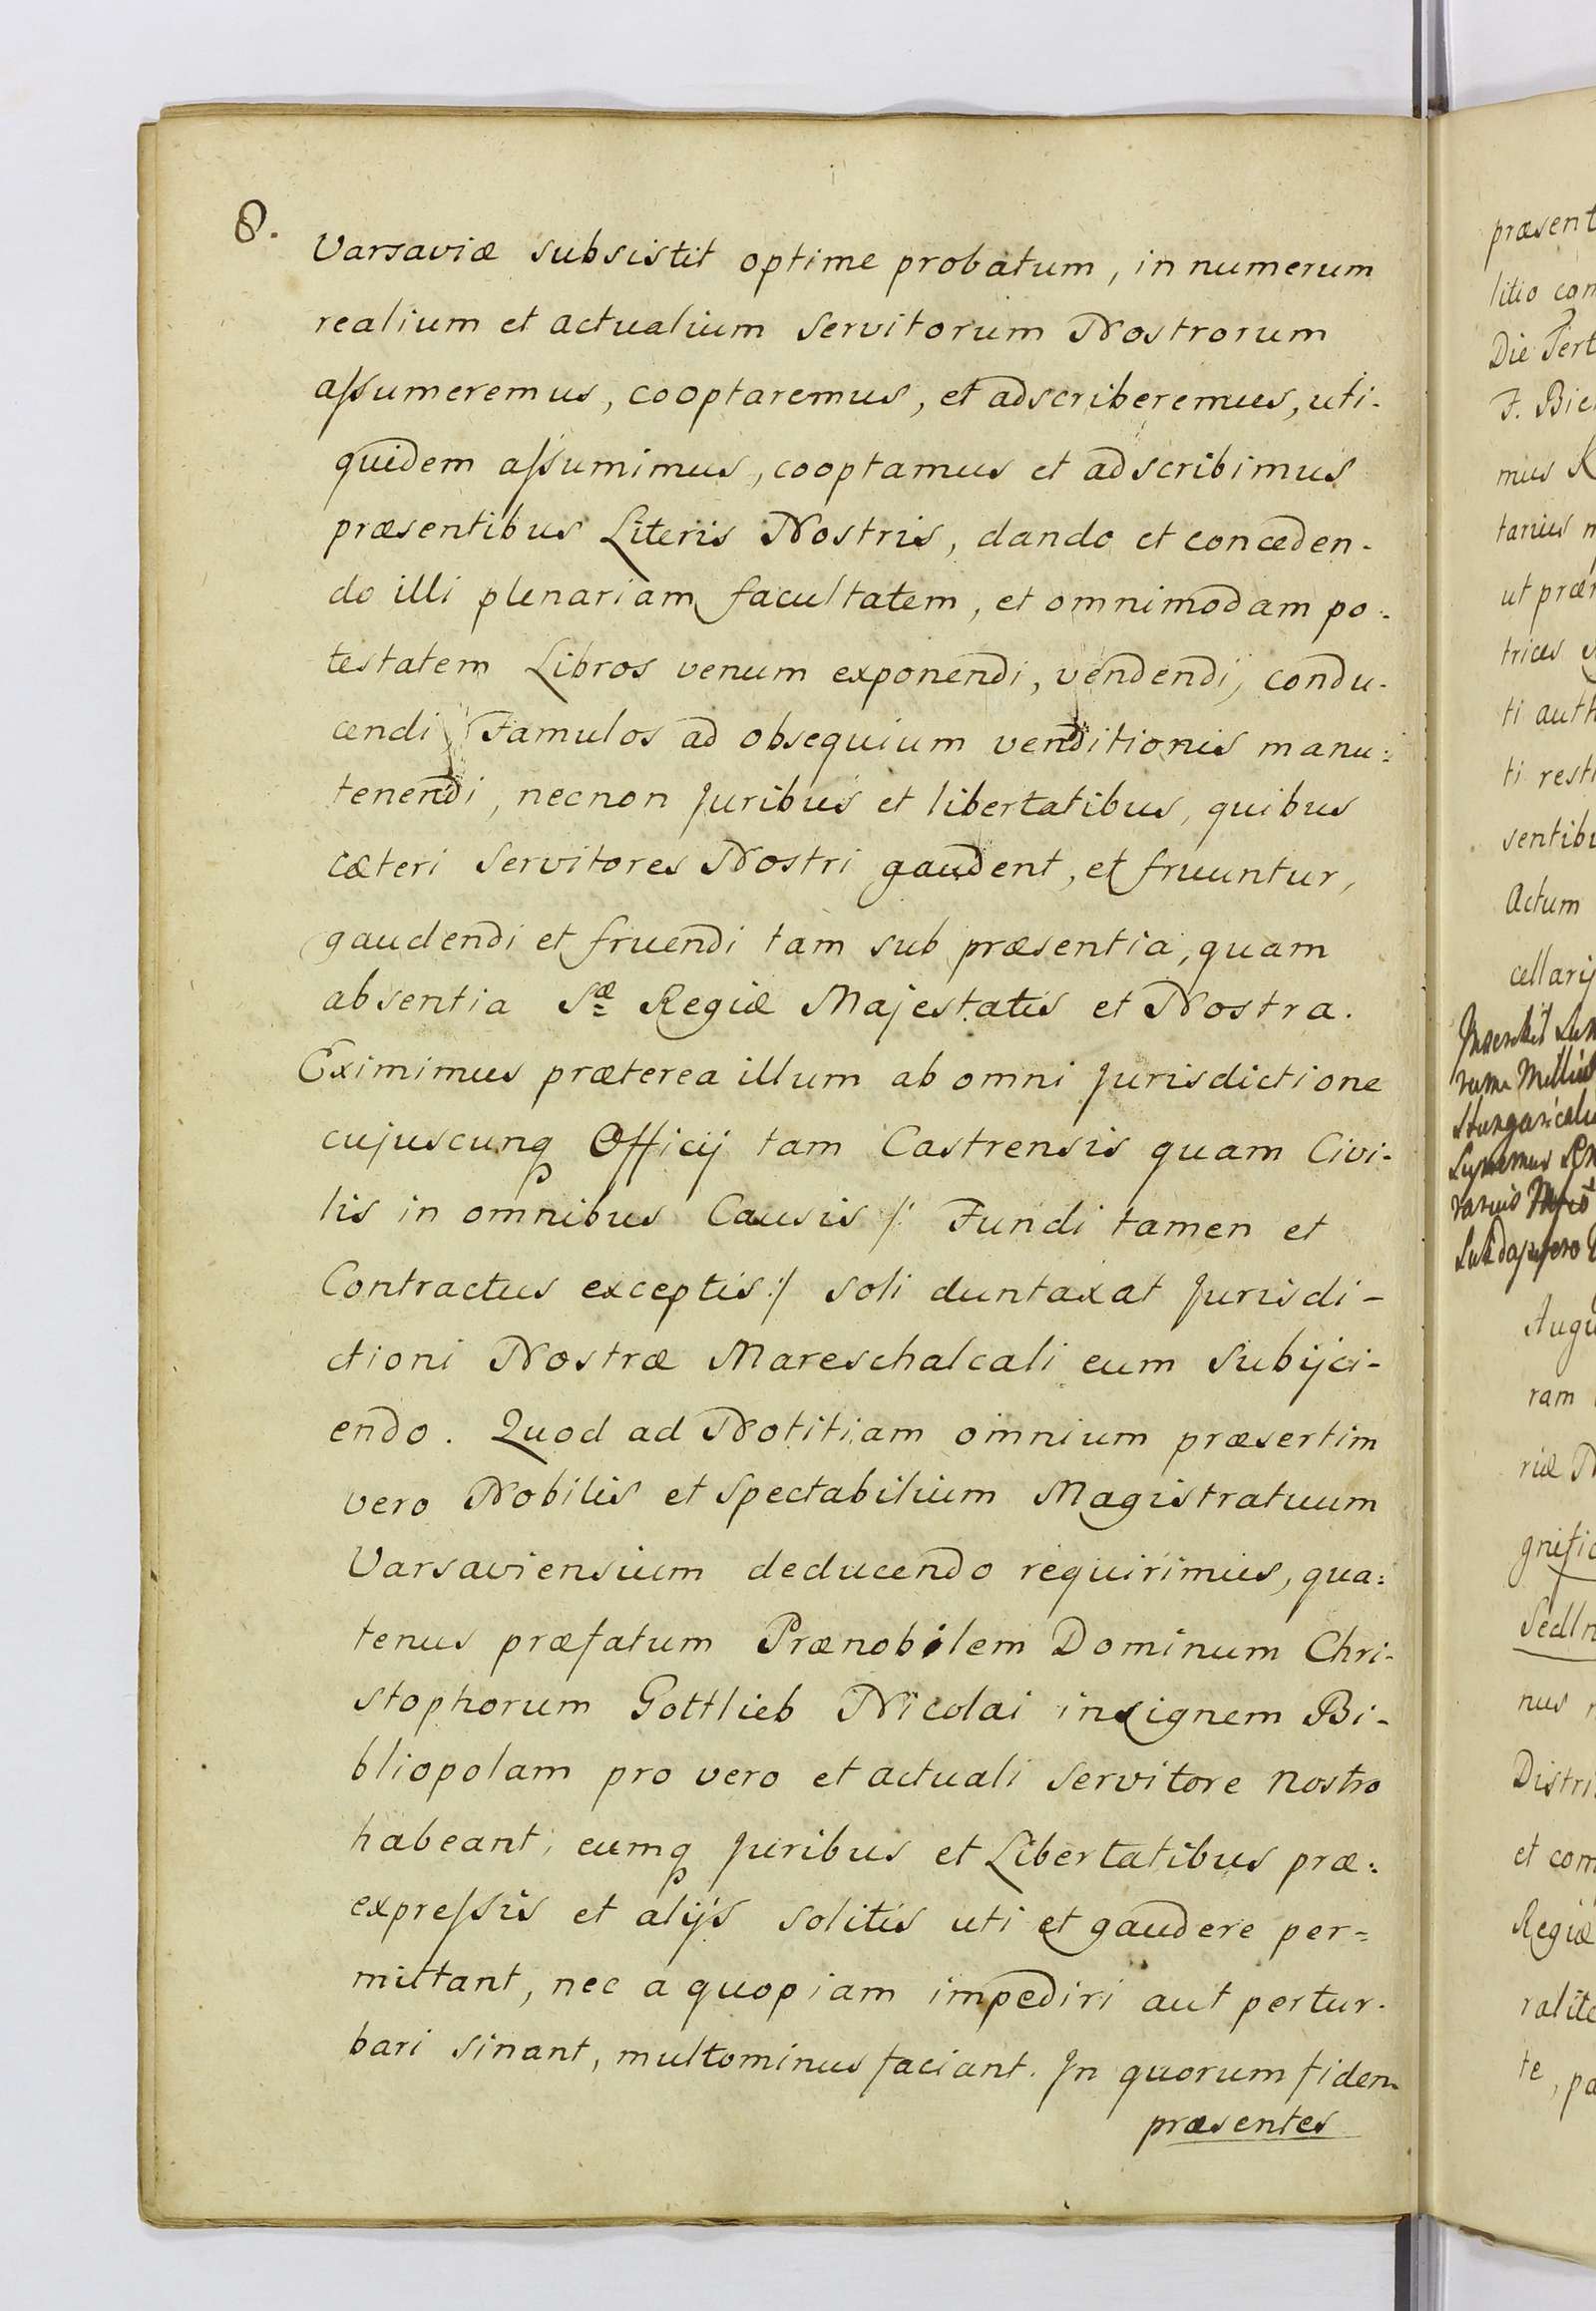 8.
Varsaviæ subsistit optime probatum, in numerum
realium et actualium Servitorum Nostrorum
aſsumeremus, cooptaremus, et adscriberemus, uti-
quidem aſsumimus, cooptamus et adscribimus
præsentibus Literis Nostris, dando et conceden-
do illi plenariam facultatem, et omnimodam po-
testatem Libros venum exponendi, vendendi, condu-
cendi, Famulos ad obsequium venditionis manu-
tenendi, necnon Juribus et libertatibus, quibus
cæteri Servitores Nostri gaudent, et fruuntur,
gaudendi et fruendi tam sub præsentia, quam
absentia Sæ Regiæ Majestatis et Nostra.
Eximimus præterea illum ab omni Jurisdictione
cujuscunq Officij tam Castrensis quam Civi-
lis in omnibus Causis /: Fundi tamen et
Contractus exceptis :/ soli duntaxat Jurisdi-
ctioni Nostræ Mareschalcali eum Subijci-
endo. Quod ad Notitiam omnium præsertim
vero Nobilis et Spectabilium Magistratuum
Varsaviensium deducendo requirimus, qua-
tenus præfatum Prænobilem Dominum Chri-
stophorum Gottlieb Nicolai insignem Bi-
bliopolam pro vero et actuali Servitore Nostro
habeant, eumq Juribus et Libertatibus præ-
expreſsis et alijs solitis uti et gaudere per-
mittant, nec a quopiam impediri aut pertur-
bari sinant, multominus faciant. In quorum fidem
præsentes
præsent
litio con
Die Tert
F. Bie
mus
tarius
ut præ
trices
ti auth
ti rest
sentibu
Actum
cellarij
Augu
ram
riæ
gnific
Sedln
nus
Distri
et com
Regiæ
ralite
te, pa